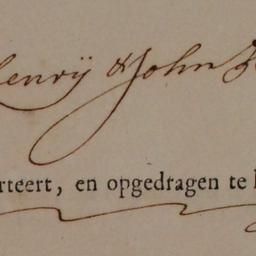 Henrÿ & John
rteert, en opgedragen te